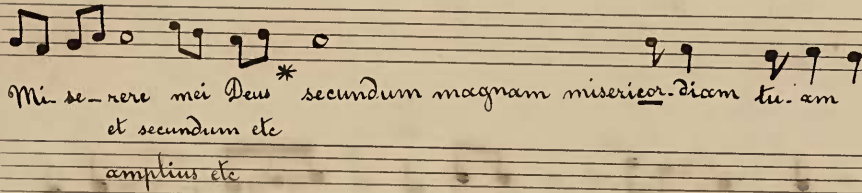 Mi-se-rere mei Deus * secundum magnam misericor-diam tu-am
et secundum etc
amplius etc